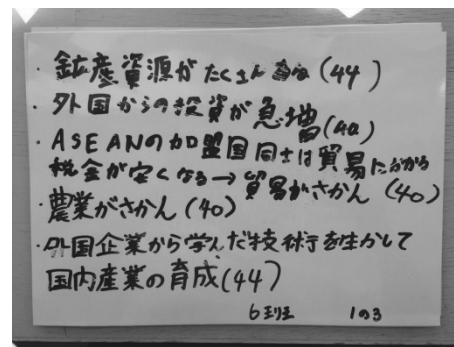 ・鉱産資源がたくさん ある(44)
・外国からの投資が急増(42)
・ASEANの加盟国同士は貿易にかかる
税金が安くなる→貿易がさかん(40)
・農業がさかん(40)
・外国企業から学んだ技術を生かして
国内産業の育成(44)
6班 1の3